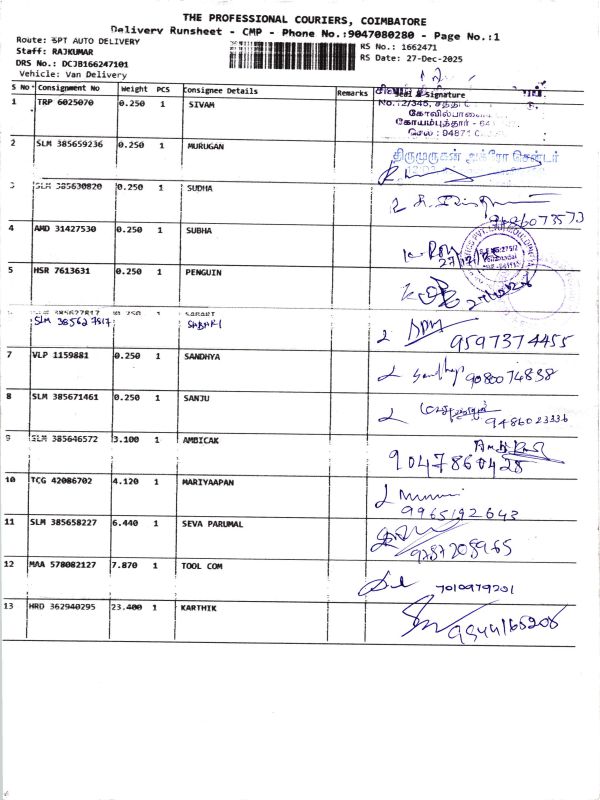 THE PROFESSIONAL COURIERS, COIMBATORE
Delivery Runsheet - CMP - Phone No.:9047080280 - Page No.:1
Route: SPT AUTO DELIVERY
Staff: RAJKUMAR
DRS No.: DCJB166247101
Vehicle: Van Delivery
RS No.: 1662471
RS Date: 27-Dec-2025
S No Consignment No Weight PCS Consignee Details Remarks Seal & Signature
1 TRP 6025070 0.250 1 SIVAM
கோவில்பாளை
2 SLM 385659236 0.250 1 MURUGAN
திருமுருகன் அக்ரோ சென்டர்
3 SLM 385630820 0.250 1 SUDHA
9486073573
4 AMD 31427530 0.250 1 SUBHA
5 HSR 7613631 0.250 1 PENGUIN
6 SLM 385627817 0.250 1 SABARI
SLM 385627817 SABARI
9597374455
7 VLP 1159881 0.250 1 SANDHYA
Sandhya 9080074838
8 SLM 385671461 0.250 1 SANJU
9486023336
9 SLM 385646572 3.100 1 AMBICAK
9047860428
10 TCG 42086702 4.120 1 MARIYAAPAN
9965192643
11 SLM 385658227 6.440 1 SEVA PARUMAL
9787205965
12 MAA 578082127 7.870 1 TOOL COM
7010979201
13 HRD 362940295 23.400 1 KARTHIK
9944165208